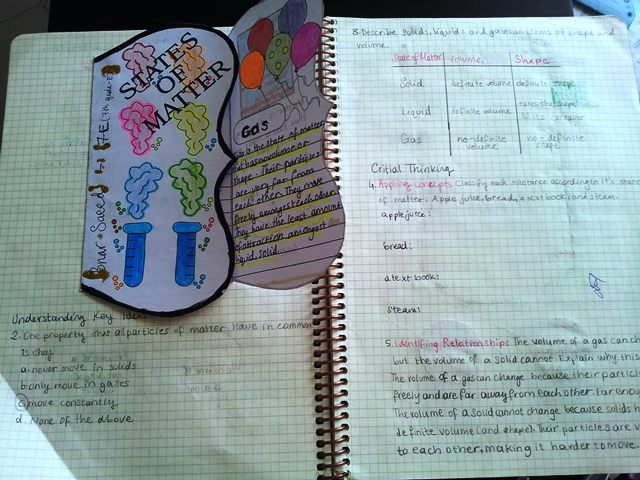 STATES
OF
MATTER
Bnar Saeed 7E (7th grade-E)
Gas
Gas is the state of matter
that has no volume or
shape. Their particles
are very far from
each other. They move
freely amongest each other
They have the least amount
of attraction amongest
liquid, solid.
Understanding Key Ideas
2. One property that all particles of matter have in common
is they
a. never move in solids
b. only move in gases
c. move constantly
d. None of the above
3. Describe solids, liquids and gases in terms of shape and
volume.
State of Matter volume Shape
Solid definite volume definite shape
Liquid definite volume takes the shape of container
Gas no-definite volume no-definite shape
Critial Thinking
4. Applying concepts Classify each substance according to it's state
of matter: Apple juice, bread, a textbook, and steam.
apple juice:
bread:
a text book:
steam:
5. Identifying Relationships The volume of a gas can ch
but the volume of a solid cannot. Explain why this
The volume of a gas can change because their particl
freely and are far away from each other. Far enou
The volume of a solid cannot change because solids h
definite volume (and shape). Their particles are v
to each other, making it harder to move.